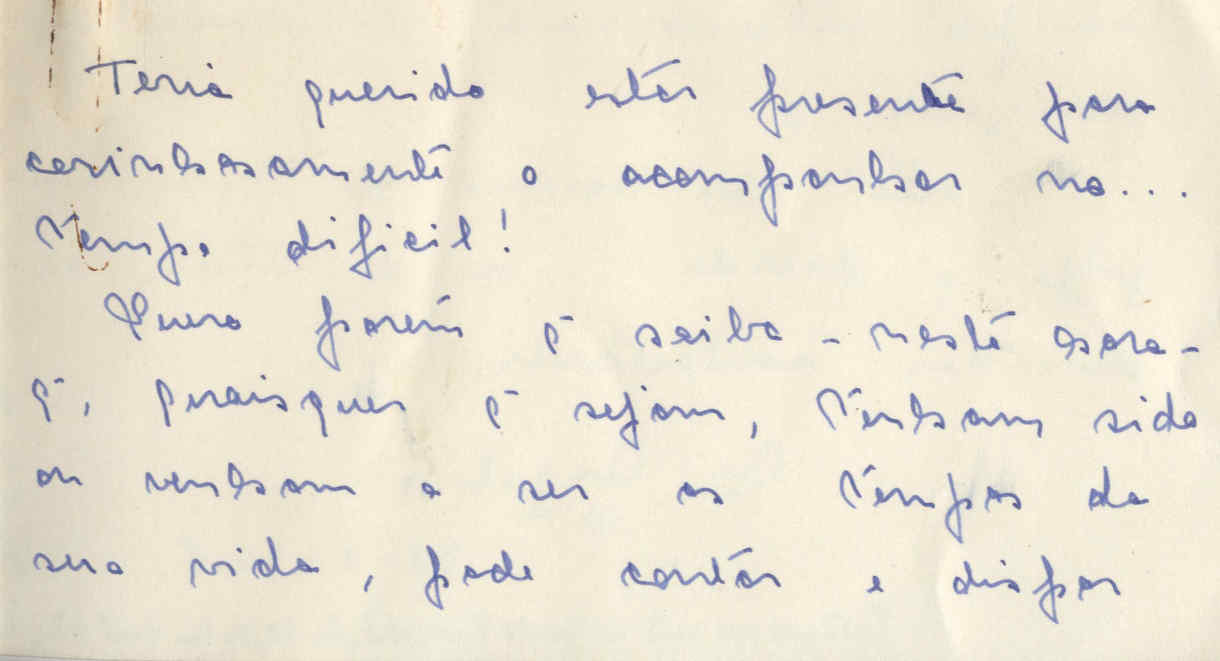 Teria querido estar presente para
carinhosamente o acompanhar no...
tempo difícil!
Quero porém q̃ saiba - neste
q̃, quaisquer q̃ sejam, tenham sido
ou venham a ser os tempos da
sua vida, pode contar e dispor